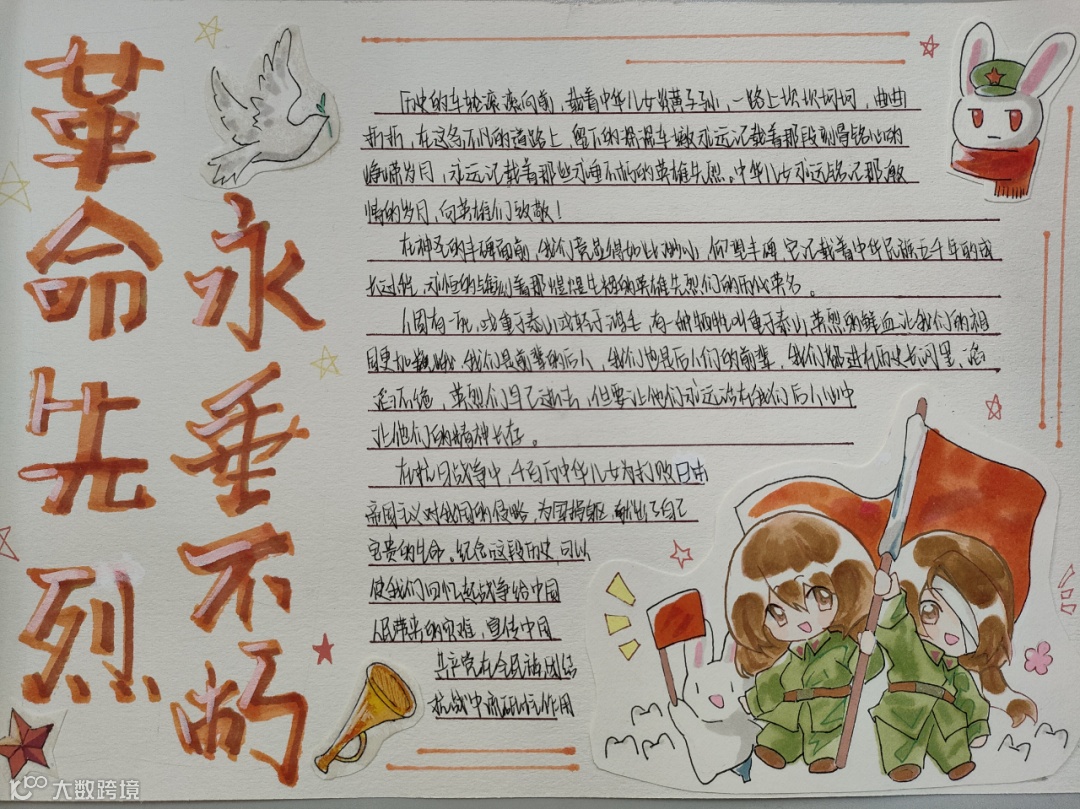 革命先烈
永垂不朽
历史的车轮滚滚向前，载着中华儿女炎黄子孙，一路上坎坎坷坷，曲曲
折折，在这条不凡的道路上，留下的车辙永远记载着那段刻骨铭心的
峥嵘岁月，永远记载着那些永垂不朽的英雄先烈。中华儿女永远铭记那
的岁月，向英雄们致敬！
在神圣的丰碑面前，我们竟显得如此渺小，仰望丰碑，它记载着中华民族五千年的成
长过程，永恒的镌刻着那惶惶先祖的英雄先烈们的历代英名。
人固有一死，或重于泰山或轻于鸿毛，有一种牺牲叫重于泰山，英烈的鲜血让我们的祖
国更加，我们是前辈的后人，我们也是后人们的前辈，我们行进在历史长河里，滔
滔不绝，英烈们自己逝去，但要让他们永远活在我们后人心中
让他们的精神长存。
在抗日战争中，千百万中华儿女为打败日本
帝国主义对我国的侵略，为国捐躯，献出了自己
宝贵的生命。纪念这段历史，可以
使我们回忆起战争给中国
人民带来的灾难，宣传中国
共产党在全民族团结
抗战中的作用
大数跨境